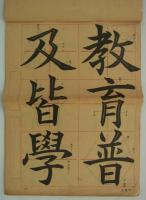 教育普
及皆學